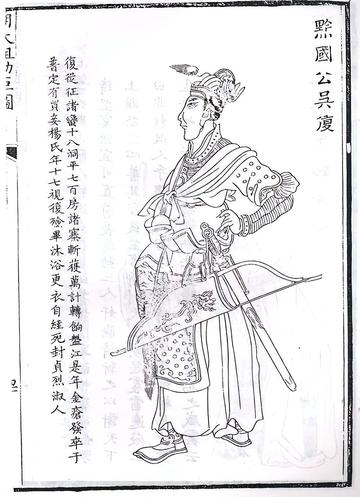 黔國公吳復
復從征諸蠻十八洞平七百房諸寨斬獲萬計轉餉盤江是年金瘡發卒于
普定有買妾楊氏年十七視復殮畢沐浴更衣自經死封貞烈淑人
明太祖功臣圖